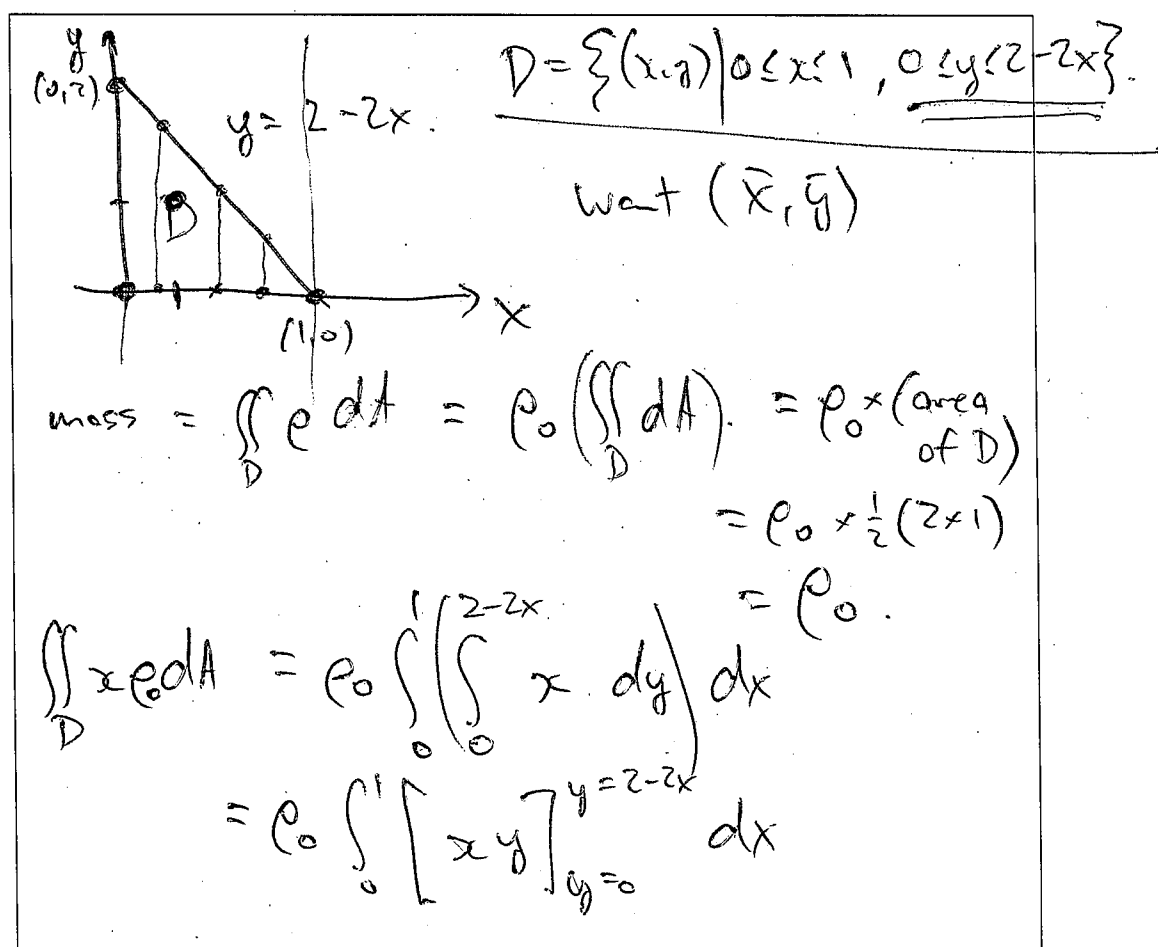 y
(0,2)
y = 2-2x.
D
x
(1,0)
D = {(x,y) | 0 ≤ x ≤ 1, 0 ≤ y ≤ 2-2x}.
want (x̄, ȳ)
mass = ∬_D ρ dA = ρ₀ (∬_D dA). = ρ₀ × (area of D)
= ρ₀ × 1/2 (2×1)
= ρ₀.
∬_D x ρ₀ dA = ρ₀ ∫_0^1 (∫_0^{2-2x} x dy) dx
= ρ₀ ∫_0^1 [xy]_{y=0}^{y=2-2x} dx